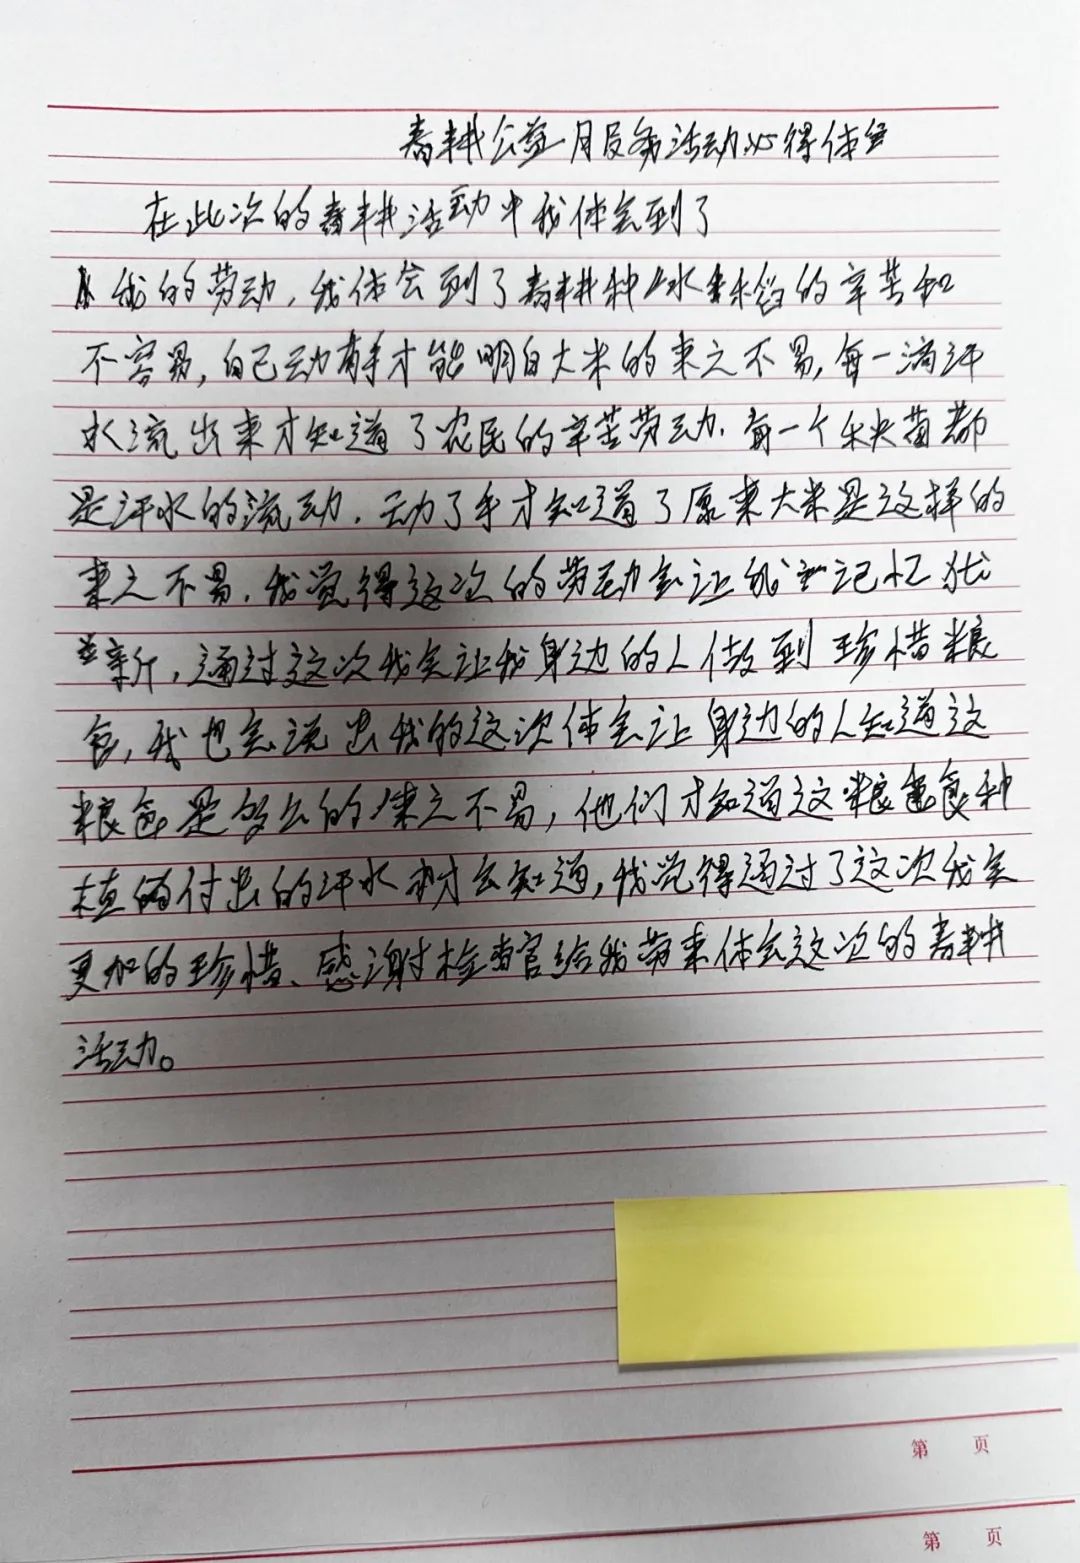 春耕公益服务活动心得体会
在此次的春耕活动中我体会到了
我的劳动,我体会到了春耕种水稻的辛苦和
不容易,自己动手才能明白大米的来之不易,每一滴汗
水流出来才知道了农民的辛苦劳动.每一个秧苗都
是汗水的流动.动了手才知道了原来大米是这样的
来之不易.我觉得这次的劳动会让我记忆犹
新,通过这次我会让我身边的人做到珍惜粮
食,我也会说出我的这次体会让身边的人知道这
粮食是多么的来之不易,他们才知道这粮食种
植付出的汗水才会知道,我觉得通过了这次我会
更加的珍惜、感谢检查官给我带来体会这次的春耕
活动。
第 页
第 页